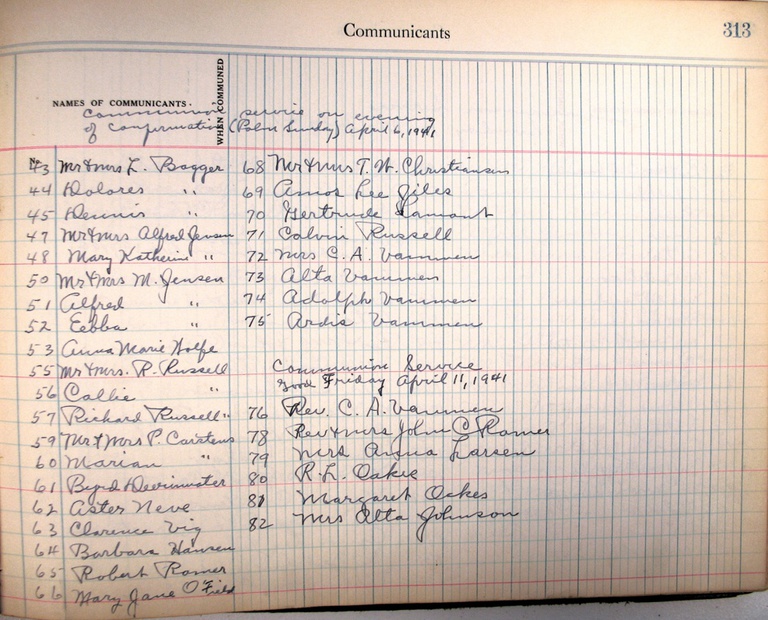 Communicants 313
NAMES OF COMMUNICANTS.
WHEN COMMUNED
Communion service on evening
of confirmation (Palm Sunday) April 6, 1941
No.
43 Mr & Mrs L. Bagger
44 Dolores "
45 Dennis "
47 Mr & Mrs Alfred Jensen
48 Mary Katherine "
50 Mr & Mrs M. Jensen
51 Alfred "
52 Ebba "
53 Anna Marie Wolfe
55 Mr & Mrs. R. Russell
56 Callie "
57 Richard Russell "
59 Mr & Mrs P. Carstens
60 Marian "
61 Byrd
62 Aster Neve
63 Clarence Vig
64 Barbara Hansen
65 Robert Romer
66 Mary Jane O'Field
68 Mr & Mrs T. W. Christiansen
69 Amos Lee Giles
70 Gertrude Lamont
71 Calvin Russell
72 Mrs C. A. Vammen
73 Alta Vammen
74 Adolph Vammen
75 Ardis Vammen
Communion Service
Good Friday April 11, 1941
76 Rev. C. A. Vammen
78 Rev & Mrs John C Romer
79 Mrs Anna Larsen
80 R. L. Oakes
81 Margaret Oakes
82 Mrs Alta Johnson